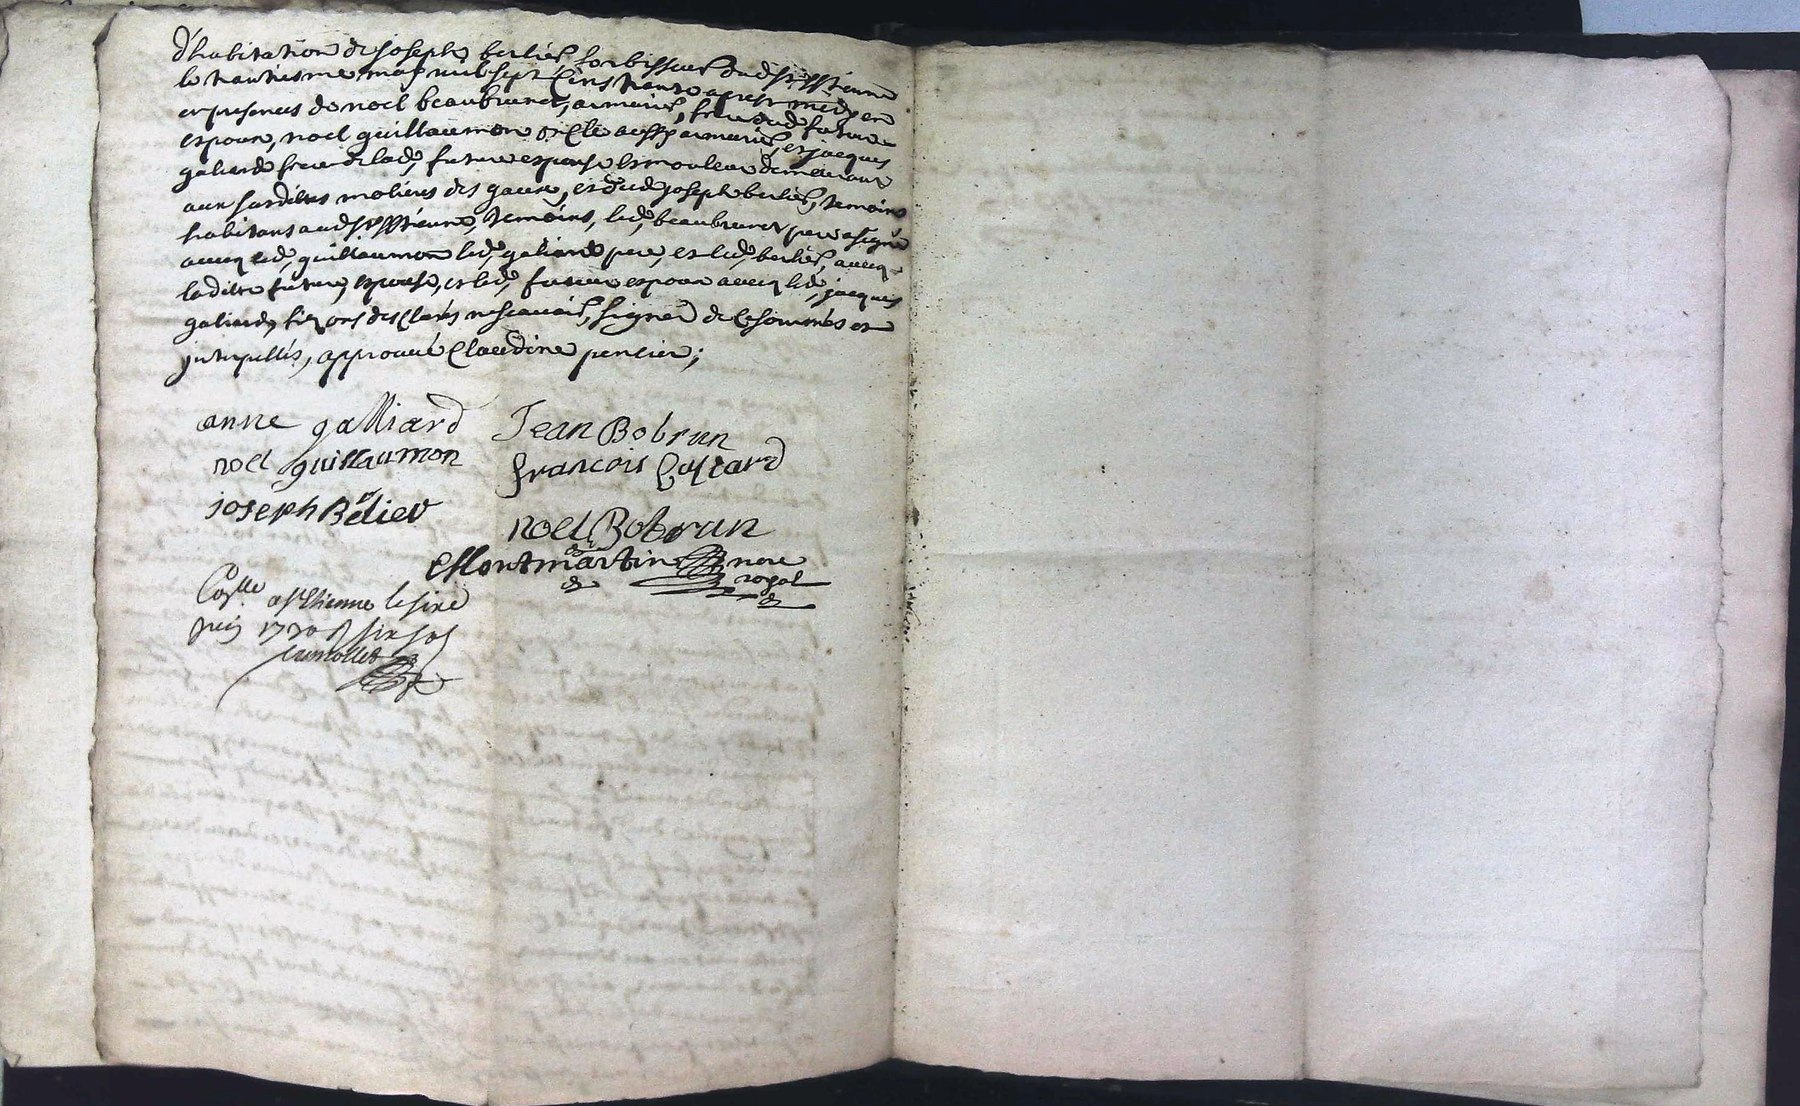 d'habitation de joseph berlier forbisseur dud st Estienne
le trantiesme may mil sept cens trante apres midy en
presences de noel beaubrunet, armurier, frere dud futur
espoux, noel guillaumon oncle aussy armurier, et jacques
galiard frere de lad, future espouse et mouleur demeurant
aux susdittes molieres des gaux, et dud joseph berlier, temoins
habitans aud st Estienne, temoins, led, beaubrunet pere a signé
avecq led, guillaumon led, galiard pere, et led, berlier, avecq
laditte future, espouse, et led, futur espoux avecq led, jacques
galiard, ont desclarés ne scavoir, signer de ce sommés et
interpellés, approuvé Claudine percier;
anne galliard
Jean Bobrun
noel guillaumon
francois
joseph Belier
noel Bobrun
Montmartin nore
royal
Coslle a st Etienne le sixe
juin 1730 R six sols